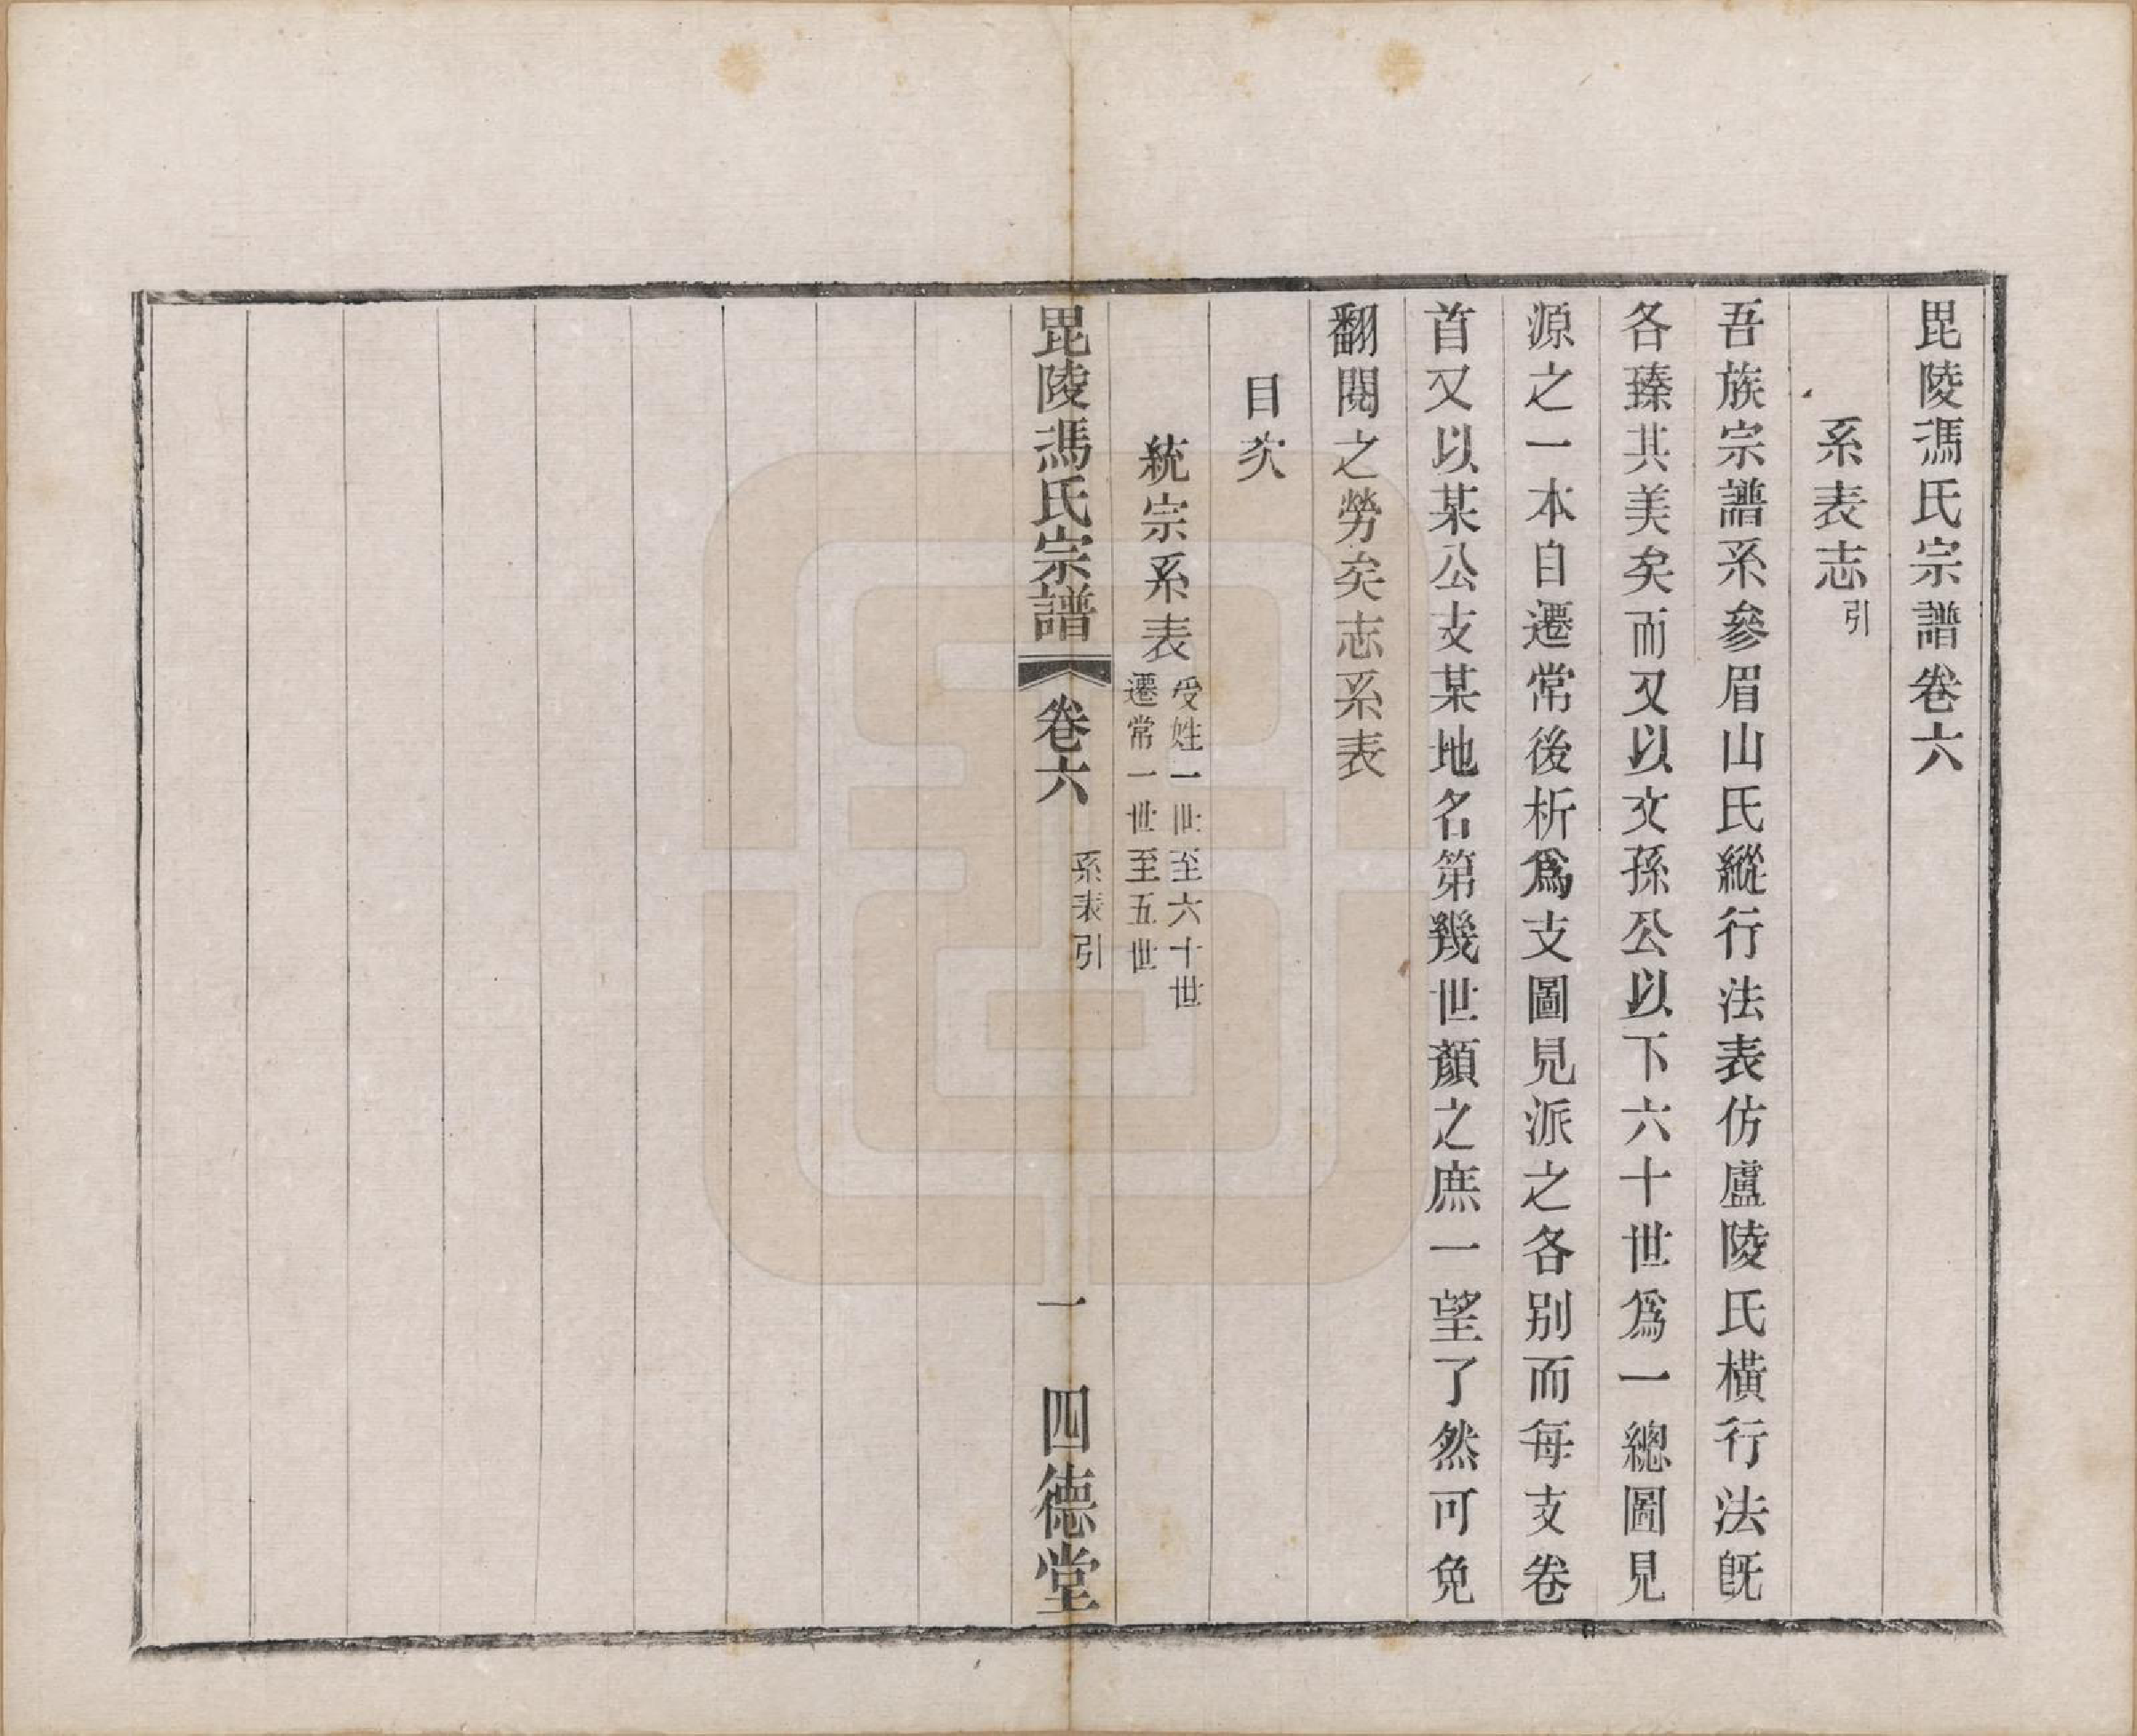 毘陵馮氏宗譜卷六
系表志引
吾族宗譜系參眉山氏縱行法表仿盧陵氏橫行法旣
各臻其美矣而又以文孫公以下六十世爲一總圖見
源之一本自遷常後析爲支圖見派之各別而每支卷
首又以某公支某地名第幾世顏之庶一望了然可免
翻閱之勞矣志系表
目次
統宗系表受姓一世至六十世
遷常一世至五世
毘陵馮氏宗譜 卷六 系表引 一 四德堂